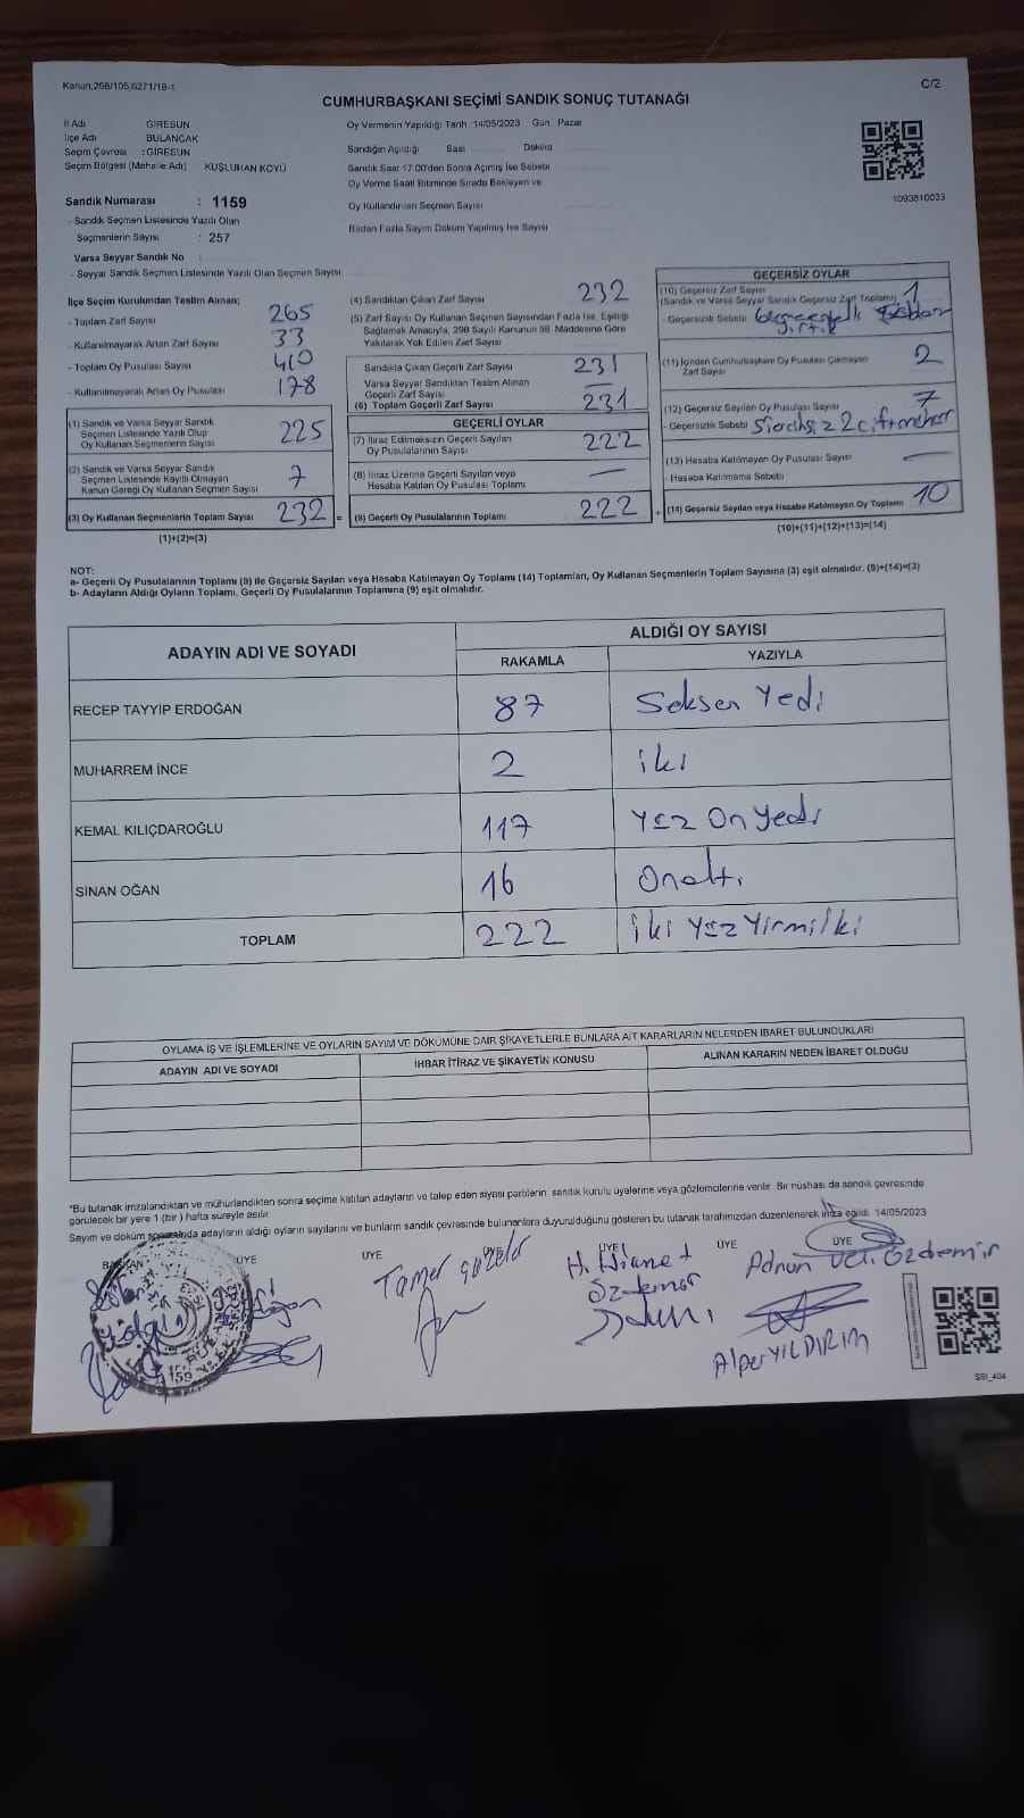 Kanun:298/105,6271/18-1
C/2
CUMHURBAŞKANI SEÇİMİ SANDIK SONUÇ TUTANAĞI
İl Adı : GİRESUN
İlçe Adı : BULANCAK
Seçim Çevresi : GİRESUN
Seçim Bölgesi (Mahalle Adı) KUŞLUHAN KÖYÜ
Oy Vermenin Yapıldığı Tarih :14/05/2023 Gün: Pazar
Sandığın Açıldığı Saat
Sandık Saat 17:00'den Sonra Açılmış İse Sebebi
Oy Verme Saati Bitiminde Sırada Bekleyen ve
Oy Kullandırılan Seçmen Sayısı
Birden Fazla Sayım Döküm Yapılmış İse Sayısı
1093810033
Sandık Numarası : 1159
- Sandık Seçmen Listesinde Yazılı Olan
Seçmenlerin Sayısı : 257
Varsa Seyyar Sandık No
- Seyyar Sandık Seçmen Listesinde Yazılı Olan Seçmen Sayısı
İlçe Seçim Kurulundan Teslim Alınan;
- Toplam Zarf Sayısı 265
- Kullanılmayarak Artan Zarf Sayısı 33
- Toplam Oy Pusulası Sayısı 410
- Kullanılmayarak Artan Oy Pusulası 178
(1) Sandık ve Varsa Seyyar Sandık
Seçmen Listesinde Yazılı Olup
Oy Kullanan Seçmenlerin Sayısı 225
(2) Sandık ve Varsa Seyyar Sandık
Seçmen Listesinde Kayıtlı Olmayan
Kanun Gereği Oy Kullanan Seçmen Sayısı 7
(3) Oy Kullanan Seçmenlerin Toplam Sayısı 232 =
(1)+(2)=(3)
(4) Sandıktan Çıkan Zarf Sayısı 232
(5) Zarf Sayısı Oy Kullanan Seçmen Sayısından Fazla İse, Eşitliği
Sağlamak Amacıyla, 298 Sayılı Kanunun 98. Maddesine Göre
Yakılarak Yok Edilen Zarf Sayısı
Sandıkta Çıkan Geçerli Zarf Sayısı 231
Varsa Seyyar Sandıktan Teslim Alınan
Geçerli Zarf Sayısı —
(6) Toplam Geçerli Zarf Sayısı 231
GEÇERLİ OYLAR
(7) İtiraz Edilmeksizin Geçerli Sayılan
Oy Pusulalarının Sayısı 222
(8) İtiraz Üzerine Geçerli Sayılan veya
Hesaba Katılan Oy Pusulası Toplamı —
(9) Geçerli Oy Pusulalarının Toplamı 222 +
GEÇERSİZ OYLAR
(10) Geçersiz Zarf Sayısı 1
(Sandık ve Varsa Seyyar Sandık Geçersiz Zarf Toplamı)
- Geçersizlik Sebebi
(11) İçinden Cumhurbaşkanı Oy Pusulası Çıkmayan
Zarf Sayısı 2
(12) Geçersiz Sayılan Oy Pusulası Sayısı 7
- Geçersizlik Sebebi
(13) Hesaba Katılmayan Oy Pusulası Sayısı —
- Hesaba Katılmama Sebebi
(14) Geçersiz Sayılan veya Hesaba Katılmayan Oy Toplamı 10
(10)+(11)+(12)+(13)=(14)
NOT:
a- Geçerli Oy Pusulalarının Toplamı (9) ile Geçersiz Sayılan veya Hesaba Katılmayan Oy Toplamı (14) Toplamları, Oy Kullanan Seçmenlerin Toplam Sayısına (3) eşit olmalıdır. (9)+(14)=(3)
b- Adayların Aldığı Oyların Toplamı, Geçerli Oy Pusulalarının Toplamına (9) eşit olmalıdır.
ADAYIN ADI VE SOYADI
ALDIĞI OY SAYISI
RAKAMLA YAZIYLA
RECEP TAYYİP ERDOĞAN 87 Seksen Yedi
MUHARREM İNCE 2 iki
KEMAL KILIÇDAROĞLU 117 Yüz On yedi
SİNAN OĞAN 16 Onaltı
TOPLAM 222 iki Yüz Yirmi iki
OYLAMA İŞ VE İŞLEMLERİNE VE OYLARIN SAYIM VE DÖKÜMÜNE DAİR ŞİKAYETLERLE BUNLARA AİT KARARLARIN NELERDEN İBARET BULUNDUKLARI
ADAYIN ADI VE SOYADI İHBAR İTİRAZ VE ŞİKAYETİN KONUSU ALINAN KARARIN NEDEN İBARET OLDUĞU
*Bu tutanak imzalandıktan ve mühürlendikten sonra seçime katılan adayların ve talep eden siyasi partilerin sandık kurulu üyelerine veya gözlemcilerine verilir. Bir nüshası da sandık çevresinde
görülecek bir yere 1 (bir) hafta süreyle asılır.
Sayım ve döküm sonunda adayların aldığı oyların sayılarını ve bunların sandık çevresinde bulunanlara duyurulduğunu gösteren bu tutanak tarafımızdan düzenlenerek imza edildi. 14/05/2023
BAŞKAN ÜYE ÜYE ÜYE ÜYE ÜYE ÜYE
Tamer Güzeler
H. Hikmet
Özdemir
Adnan Veli Özdemir
Alper YILDIRIM
159
SSI_404